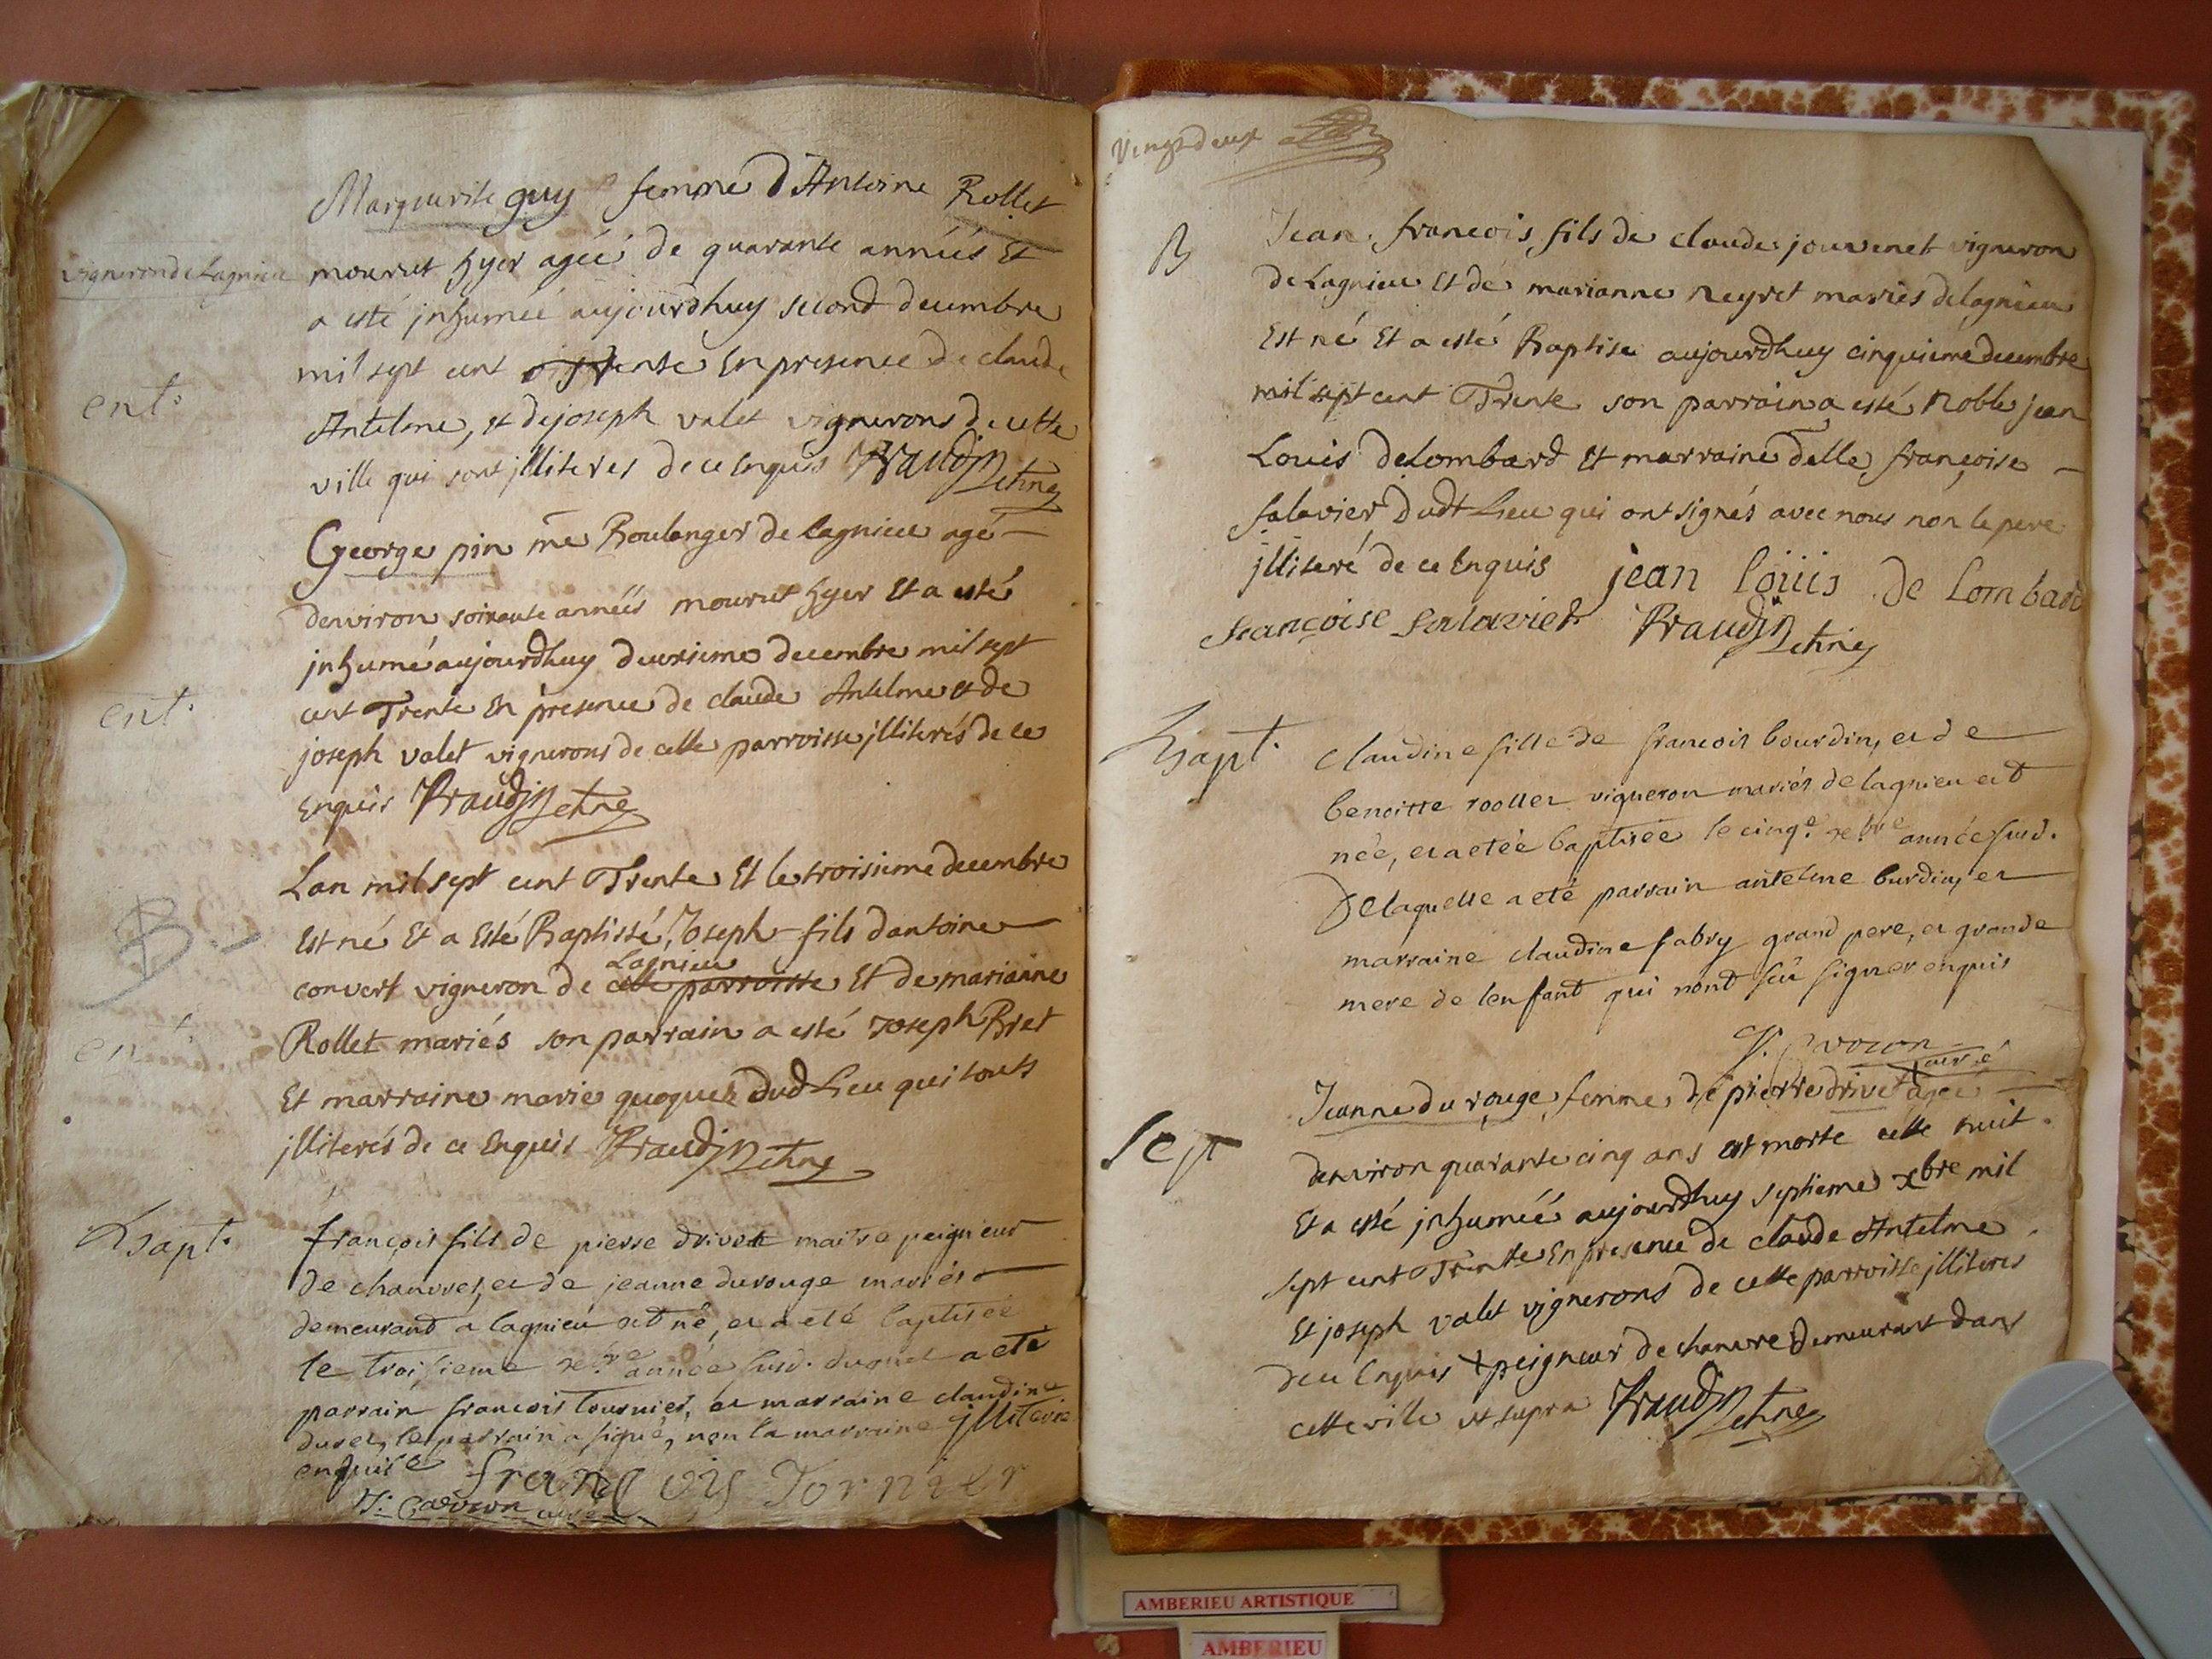 Marguerite guy femme d'Antoine Rollet
vigneron de Lagnieu
mourut hyer agéé de quarante annéés Et
a esté jnhuméé aujourdhuy second decembre
ent.
mil sept cent trente En presence de claude
Antelme, et de joseph valet vignerons de cette
ville qui sont jlliteres de ce Enquis Praudin
George pin me Boulanger de Lagnieu agé
denviron soixante annéés mourut hyer Et a esté
jnhumé aujourdhuy deuxieme decembre mil sept
ent.
cent Trente En presence de claude Antelme et de
joseph valet vignerons de cette parroisse jlliterés de ce
Enquis Praudin
Lan mil sept cent Trente Et le troisieme decembre
B
Est né Et a Esté Baptissé, Joseph fils dantoine
Lagnieu
convert vigneron de cette parroisse Et de marianne
ent.
Rollet mariés son parrain a esté Joseph Bret
Et marraine marie quoquet dud Lieu qui touts
jlliterés de ce Enquis Praudin
Bapt.
francois fils de pierre drivet maitre peigneur
de chanvres, et de jeanne durouge mariés
demeurant a lagnieu est né, et a eté baptisée
le troisieme xe.bre année susd. duquel a eté
parrain francois tournier, et marraine claudine
duret, le parrain a signé, non la marraine jlliterée
enquise françois Tornier
curé
Vingt deux
B
Jean francois fils de claude jouvenet vigneron
de Lagnieu Et de marianne neyret mariés de lagnieu
Est né Et a esté Baptisé aujourdhuy cinquiéme decembre
mil sept cent Trente son parrain a esté Noble jean
Louis de Lombard Et marraine delle françoise
salavier dudt Lieu qui ont signés avec nous non le pere
jlliteré de ce Enquis jean loüis de Lombard
françoise salavier Praudin
Bapt.
claudine fille de francois bourdin, et de
benoitte roollet vigneron mariés de lagnieu est
née, et a etée baptisée le cinq.e xe.bre année susd.
De laquelle a eté parrain antelme burdin, et
marraine claudine fabry grand pere, et grande
mere de lenfant qui nont sçu signer enquis
curé
Jeanne du rouge femme de pierre drivet x agee
Sept
denviron quarante cinq ans est morte cette nuit
Et a esté jnhuméé aujourdhuy septieme xbre mil
sept cent Trente En presence de claude Antelme
Et joseph valet vignerons de cette parroisse jlliteres
de ce Enquis x peigneur de chanvre Demeurant dans
cette ville ut supra Praudin
AMBERIEU ARTISTIQUE
AMBERIEU